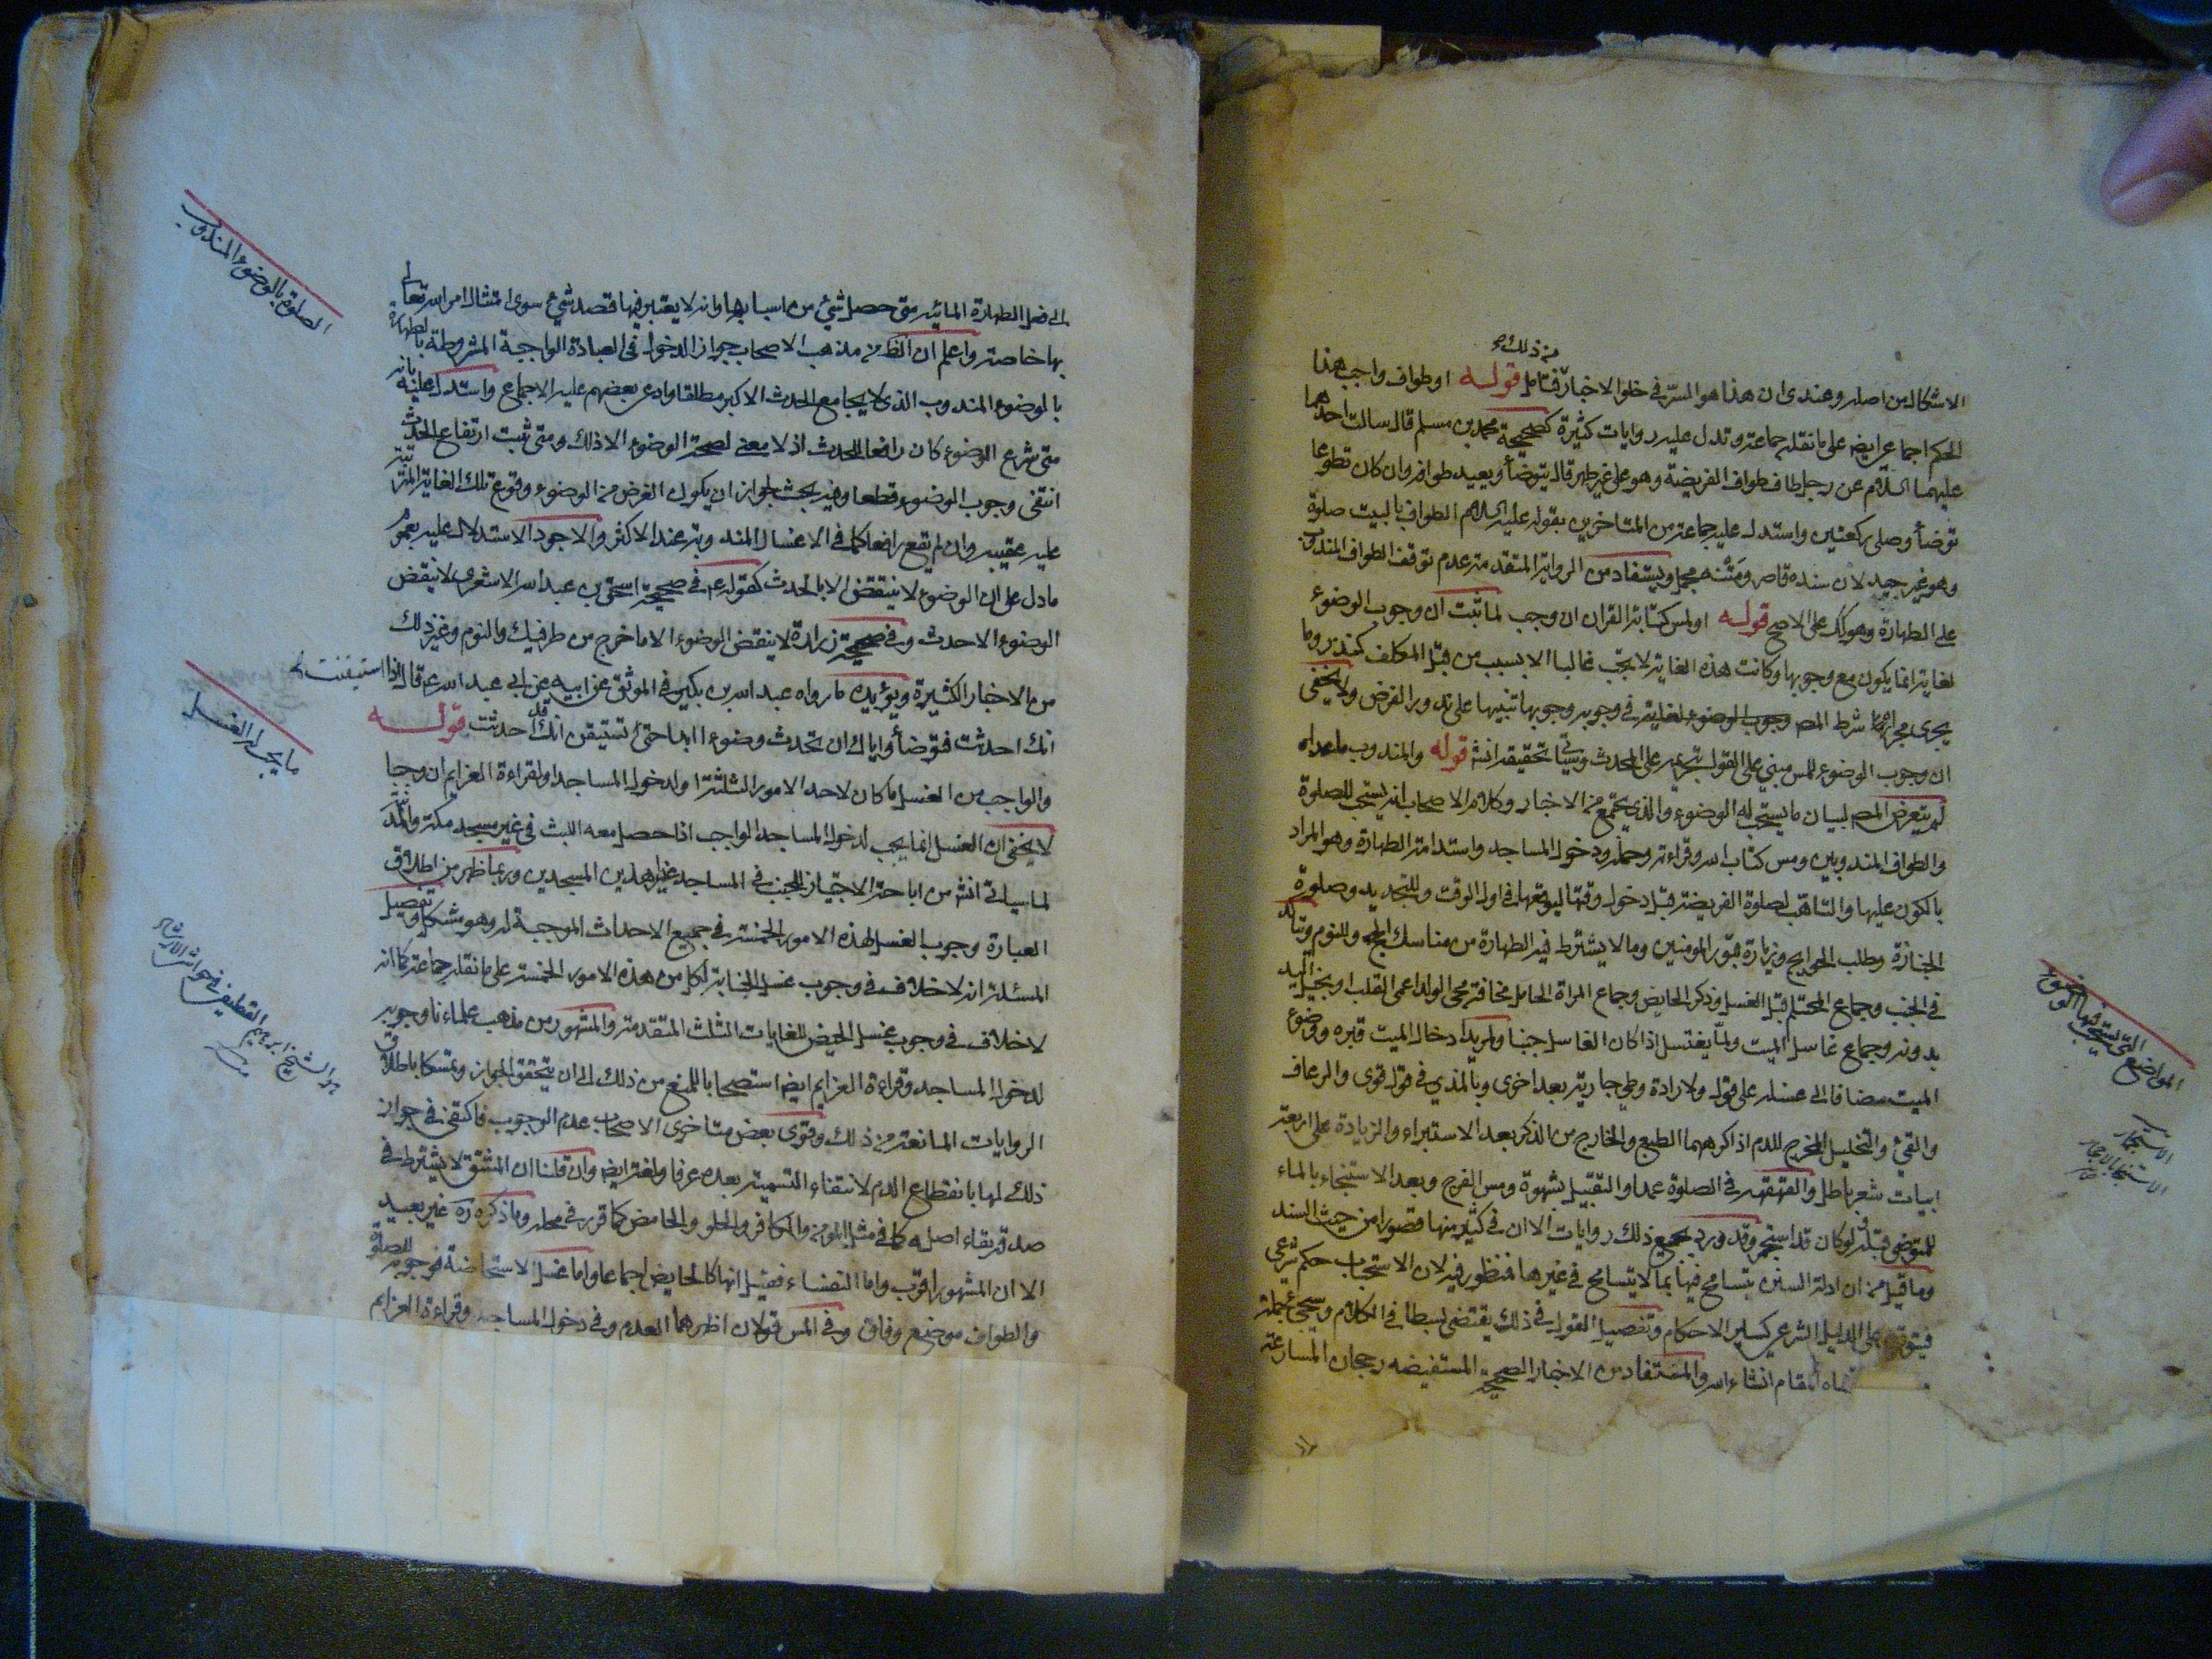 من ذلك
الاشكال من اصله وعندى ان هذا هو السر فى خلو الاخبار فتامل قوله او طواف واجب هذا
الحكم اجماعى ايضا على ما نقله جماعة وتدل عليه روايات كثيرة كصحيحة محمد بن مسلم قال سالت احدهما
عليهما السلام عن رجل طاف طواف الفريضة وهو على غير طهر قال يتوضأ ويعيد طوافه وان كان تطوعا
توضأ وصلى ركعتين واستدل عليه جماعة من المتاخرين بقوله عليه السلام الطواف بالبيت صلوة
وهو غير جيد لان سنده قاصر ومتنه مجمل ويستفاد من الرواية المتقدمة عدم توقف الطواف المندوب
على الطهارة وهو كك على الاصح قوله او لمس كتابة القران ان وجب لما ثبت ان وجوب الوضوء
لغاية انما يكون مع وجوبها وكانت هذه الغاية لا يجب غالبا الا بسبب من قبل المكلف كنذر وما
يجرى مجراه شرط المص وجوب الوضوء لغايته فى وجوبه وجوبها تنبيها على ندور الفرض ولا يخفى
ان وجوب الوضوء للمس مبنى على القول بتحريمه على المحدث وسياتى تحقيقه انش قوله والمندوب ما عداه
لم يتعرض المص لبيان ما يستحب له الوضوء والذى يجتمع من الاخبار وكلام الاصحاب انه يستحب للصلوة
والطواف المندوبين ومس كتاب الله وقراءته وحمله ودخول المساجد واستدامة الطهارة وهو المراد
بالكون عليها والتاهب لصلوة الفريضة قبل دخول وقتها ليوقعها فى اول الوقت وللتجديد وصلوة
الجنازة وطلب الحوايج وزيارة قبور المومنين وما لا يشترط فيه الطهارة من مناسك الحج وللنوم ويتاكد
فى الجنب وجماع المحتلم قبل الغسل وذكر الحايض وجماع المراة الحامل مخافة مجى الولد اعمى القلب او بخيل اليد
بدونه وجماع غاسل الميت ولما يغتسل اذا كان الغاسل جنبا ولمريد ادخال الميت قبره ووضوء
الميت مضافا الى غسله على قول ولارادة وطى جارية بعد اخرى وبالمذى فى قول قوى والرعاف
والقئ والتخليل المخرج للدم اذا كرههما الطبع والخارج من الذكر بعد الاستبراء والزيادة على اربعة
ابيات شعر باطل والقهقهه فى الصلوة عمدا والتقبيل بشهوة ومس الفرج وبعد الاستنجاء بالماء
للمتوضى قبله لو كان قد استجمر وقد ورد بجميع ذلك روايات الا ان فى كثير منها قصورا من حيث السند
وما قيل من ان ادلة السنن يتسامح فيها بما لا يتسامح فى غيرها فمنظور فيه لان الاستحباب حكم شرعى
فيتوقف على الدليل الشرعى كساير الاحكام وتفصيل القول فى ذلك يقتضى بسطا فى الكلام وسيجئ جملة
المقام انشاء الله والمستفاد من الاخبار الصحيحة المستفيضه رجحان المسارعة
المواضع التى يستحب فيها الوضوء
الى فعل الطهارة المائيه متى حصل شئ من اسبابها وانه لا يعتبر فيها قصد شئ سوى امتثال امر الله تعالى
بها خاصة واعلم ان الظ من مذهب الاصحاب جواز الدخول فى العبادة الواجبة المشروطة بالطهارة
بالوضوء المندوب الذى لا يجامع الحدث الاكبر مطلقا وادعى بعضهم عليه الاجماع واستدل عليه بانه
متى شرع الوضوء كان رافعا للحدث اذ لا معنى لصحة الوضوء الا ذلك ومتى ثبت ارتفاع الحدث
انتفى وجوب الوضوء قطعا وفيه بحث لجواز ان يكون الغرض من الوضوء وقوع تلك الغاية المترتبة
عليه عقيبه وان لم يقع رافعا كما فى الاغسال المندوبة عند الاكثر والاجود الاستدلال عليه بعموم
ما دل على ان الوضوء لا ينتقض الا بالحدث كقوله ع فى صحيحة اسحق بن عبد الله الاشعرى لا ينقض
الوضوء الا حدث وفى صحيحة زرارة لا ينقض الوضوء الا ما خرج من طرفيك والنوم وغير ذلك
من الاخبار الكثيرة ويؤيده ما رواه عبد الله بن بكير فى الموثق عن ابيه عن ابى عبد الله ع قال اذا استيقنت
انك احدثت فتوضأ واياك ان تحدث وضوءا ابدا حتى تستيقن انك قد احدثت قوله
والواجب من الغسل ما كان لاحد الامور الثلثة او لدخول المساجد او لقراءة العزايم ان وجبا
لا يخفى ان الغسل انما يجب لدخول المساجد الواجب اذا حصل معه اللبث فى غير مسجد مكة والمدينة
لما سياتى انش من اباحة الاجتياز للجنب فى المساجد غير هذين المسجدين وربما ظهر من اطلاق
العبارة وجوب الغسل لهذه الامور الخمسة فى جميع الاحداث الموجبة له وهو مشكل وتفصيل
المسئلة انه لا خلاف فى وجوب غسل الجنابة لكل من هذه الامور الخمسة على ما نقله جماعة كما انه
لا خلاف فى وجوب غسل الحيض للغايات الثلث المتقدمة والمشهور من مذهب علماءنا وجوبه
لدخول المساجد وقراءة العزايم ايضا استصحابا للمنع من ذلك الى ان يتحقق الجواز وتمسكا باطلاق
الروايات المانعة من ذلك وقوى بعض متاخرى الاصحاب عدم الوجوب فاكتفى فى جواز
ذلك لها بانقطاع الدم لانتفاء التسمية بعده عرفا ولغة ايضا وان قلنا ان المشتق لا يشترط فى
صدقه بقاء اصله كما فى مثل المؤمن والكافر والحلو والحامض كما قرر فى محله وما ذكره ره غير بعيد
الا ان المشهور اقرب واما النفساء فقيل انها كالحايض اجماعا واما غسل الاستحاضة فوجوبه للصلوة
والطواف موضع وفاق وفى المس قولان اظهرهما العدم وفى دخول المساجد وقراءة العزايم
الصلوة بالوضوء المندوب
ما يجب له الغسل